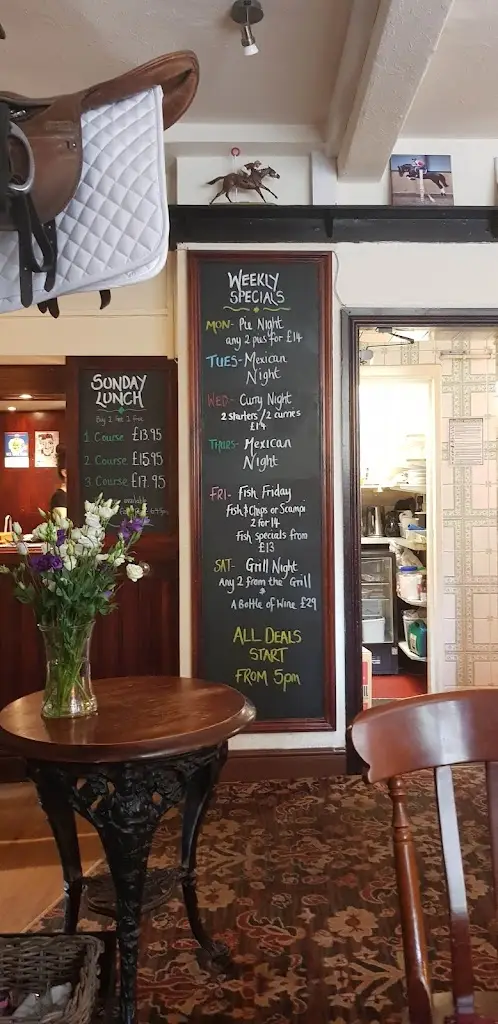 SUNDAY
LUNCH
Buy 1 Get 1 Free
1 Course £13.95
2 Course £15.95
3 Course £17.95
available
WEEKLY
SPECIALS
MON- Pie Night
any 2 pies for £14
TUES- Mexican
Night
WED- Curry Night
2 starters / 2 curries
£14
THURS- Mexican
Night
FRI- Fish Friday
Fish & Chips or Scampi
2 for 14
Fish specials from
£13
SAT- Grill Night
Any 2 from the Grill
&
A Bottle of Wine £29
ALL DEALS
START
FROM 5pm